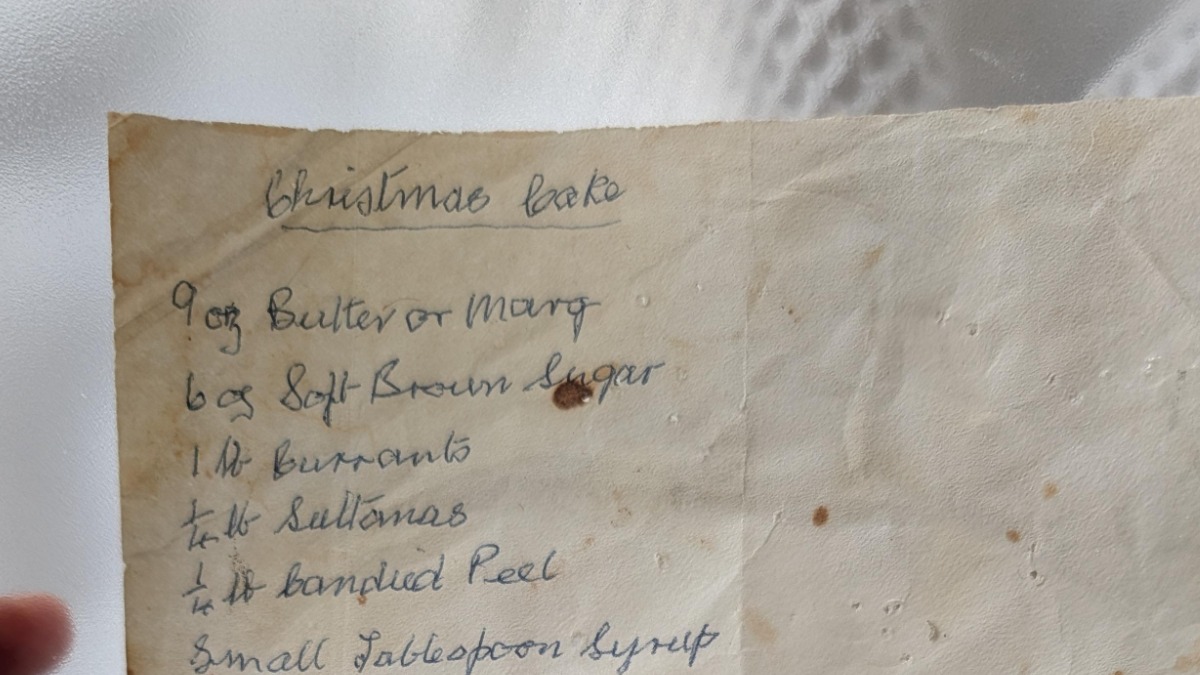 Christmas Cake
9 oz Butter or Marg
6 oz Soft Brown Sugar
1 lb Currants
1/4 lb Sultanas
1/4 lb Candied Peel
Small Tablespoon Syrup